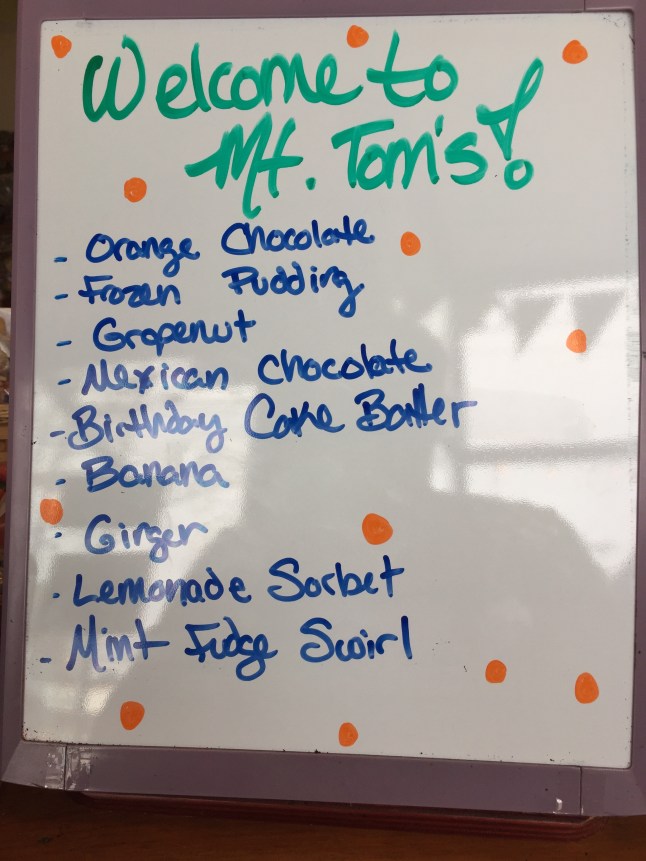 Welcome to
Mt. Tom's!
- Orange Chocolate
- Frozen Pudding
- Grapenut
- Mexican Chocolate
- Birthday Cake Batter
- Banana
- Ginger
- Lemonade Sorbet
- Mint Fudge Swirl